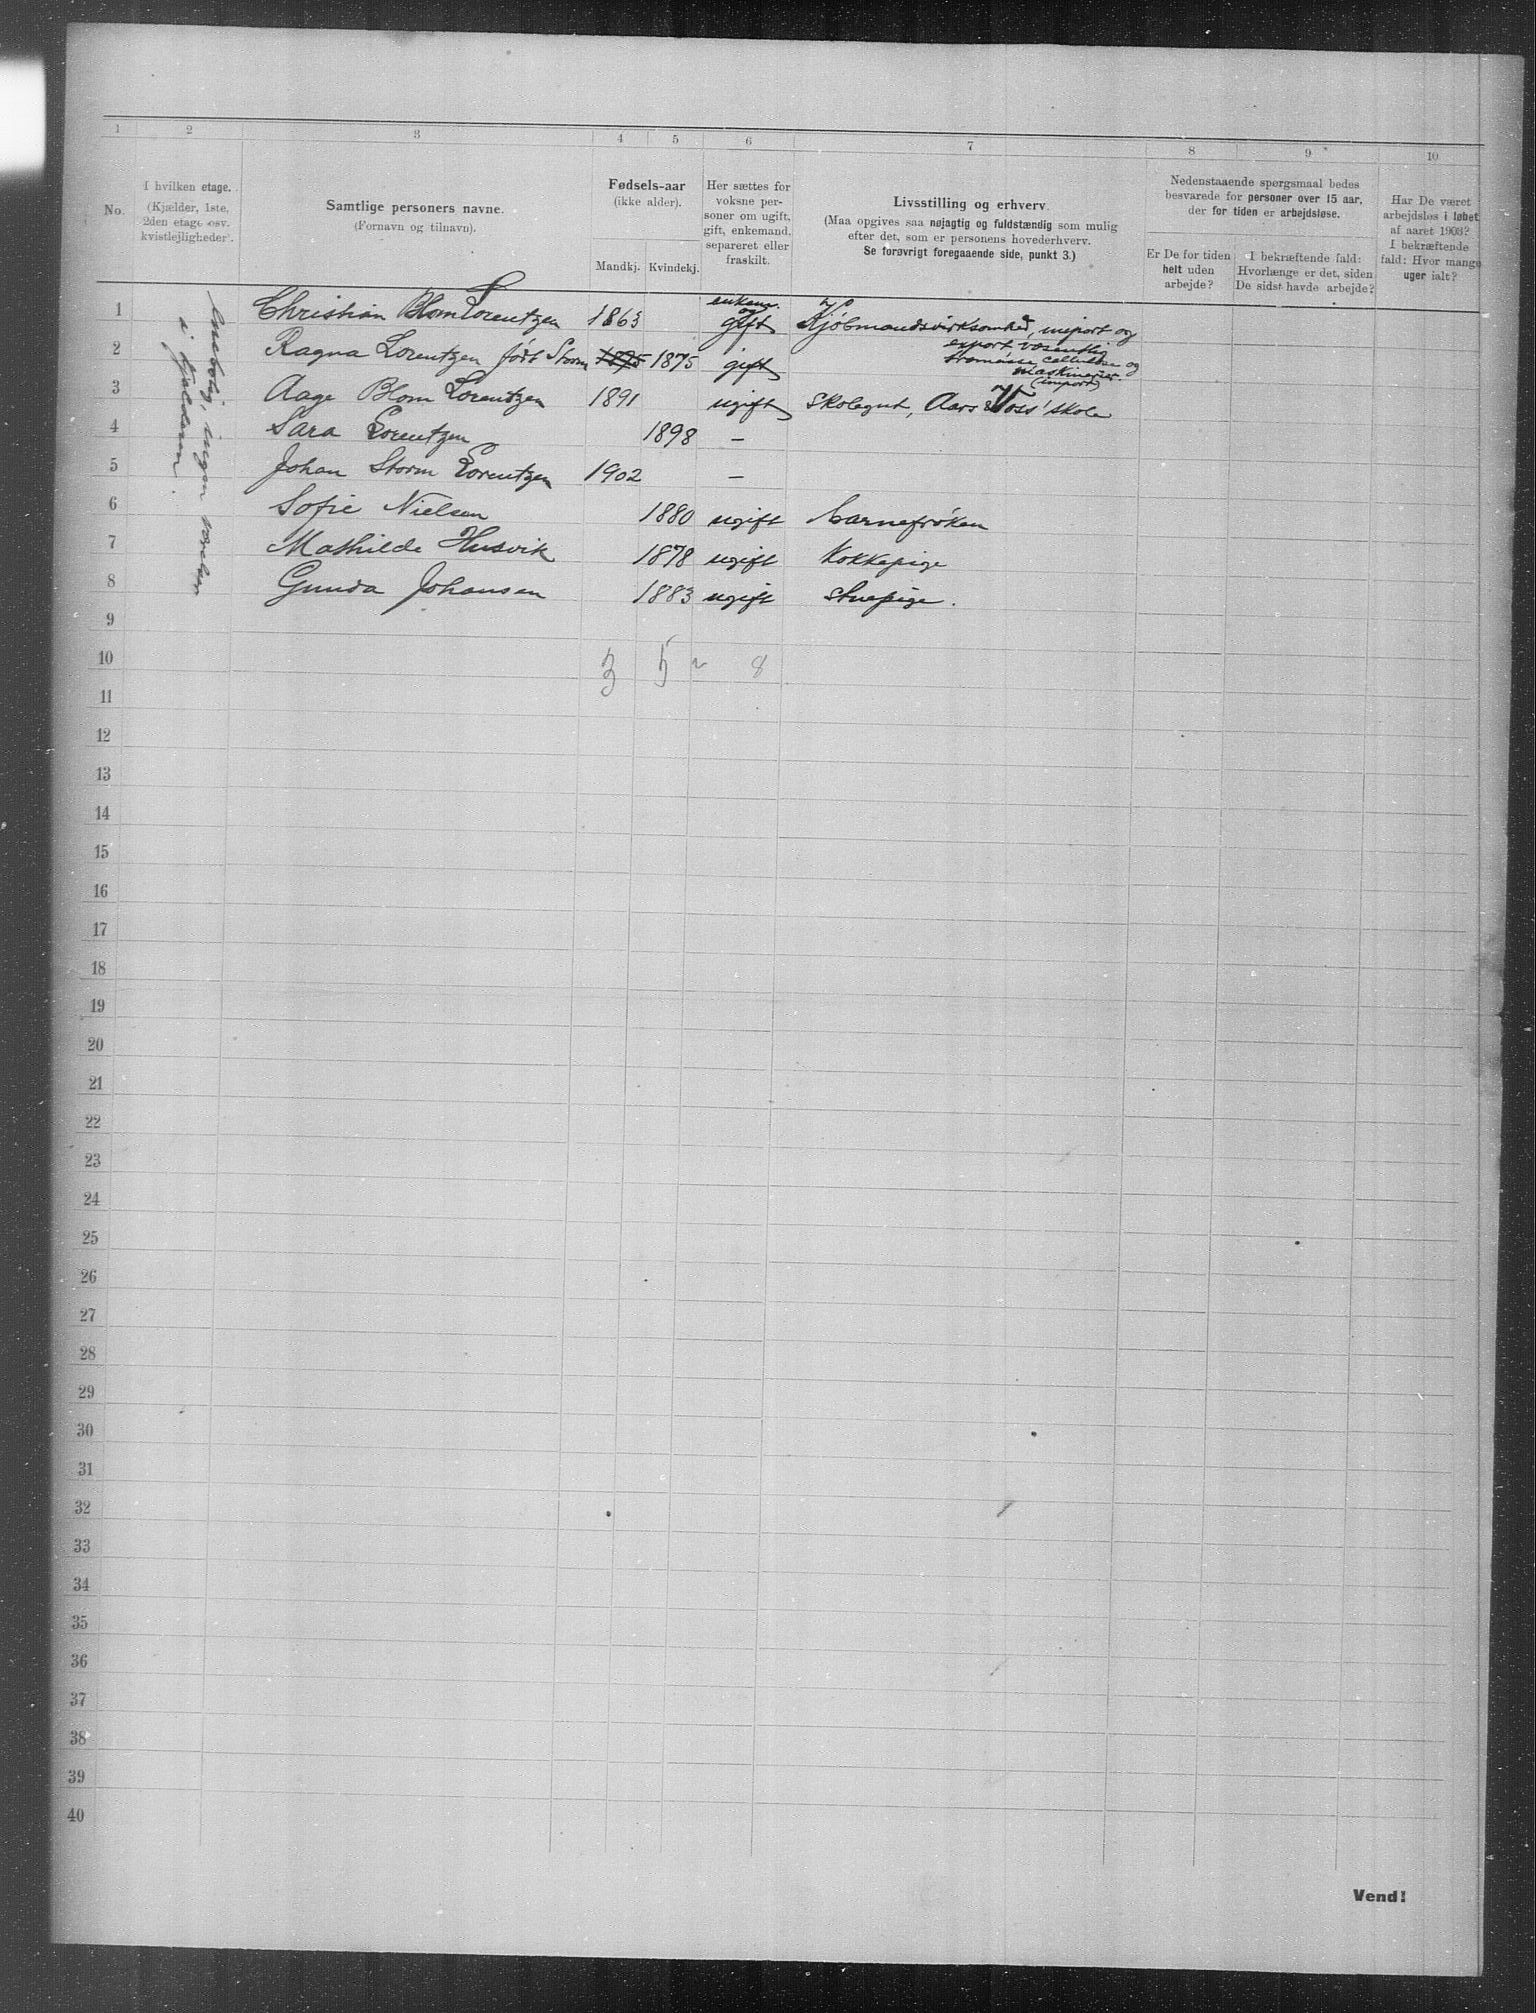 1 2 3 4 5 6 7 8 9 10
No.
I hvilken etage.
(Kjælder, 1ste,
2den etage osv.
kvistleiligheder).
Samtlige personers navne.
(Fornavn og tilnavn).
Fødsels-aar
(ikke alder).
Mandkj. Kvindekj.
Her sættes for
voksne per-
soner om ugift,
gift, enkemand,
separeret eller
fraskilt.
Livsstilling og erhverv.
(Maa opgives saa nøjagtig og fuldstændig som mulig
efter det, som er personens hovederhverv.
Se forøvrigt foregaaende side, punkt 3.)
Nedenstaaende spørgsmaal bedes
besvarede for personer over 15 aar,
der for tiden er arbejdsløse.
Er De for tiden
helt uden
arbejde?
I bekræftende fald:
Hvorlænge er det, siden
De sidst havde arbejde?
Har De været
arbejdsløs i løbet
af aaret 1903?
I bekræftende
fald: Hvor mange
uger ialt?
ingen værelser
i kjælderen
1 Christian Blom Lorentzen 1863 og gift Kjöbmandsvirksomhed, import og
export væsentlig
cellulose og
maskinerier
(import)
2 Ragna Lorentzen född Storm 1875 1875 gift
3 Aage Blom Lorentzen 1891 ugift skolegut, Aars & Voss' skole
4 Sara Lorentzen 1898 —
5 Johan Storm Lorentzen 1902 —
6 Sofie Nielsen 1880 ugift barnefröken
7 Mathilde Husvik 1878 ugift Kokkepige
8 Gunda Johansen 1883 ugift stuepige.
9
10 3 5 8
11
12
13
14
15
16
17
18
19
20
21
22
23
24
25
26
27
28
29
30
31
32
33
34
35
36
37
38
39
40
Vend!